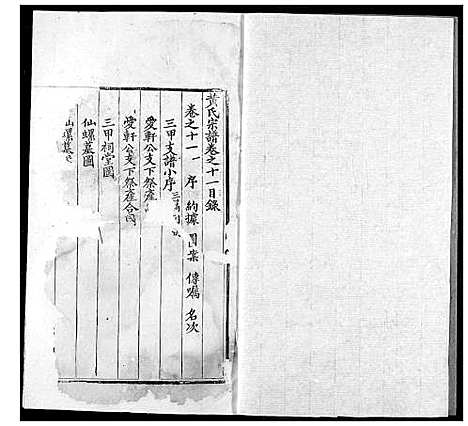 黄氏宗譜卷之十一目錄
卷之十一 序 約據 圖案 傳囑 名次
三甲支譜小序
愛軒公支下祭產
愛軒公支下祭產合同
三甲祠堂圖
仙螺墓圖
山螺墓